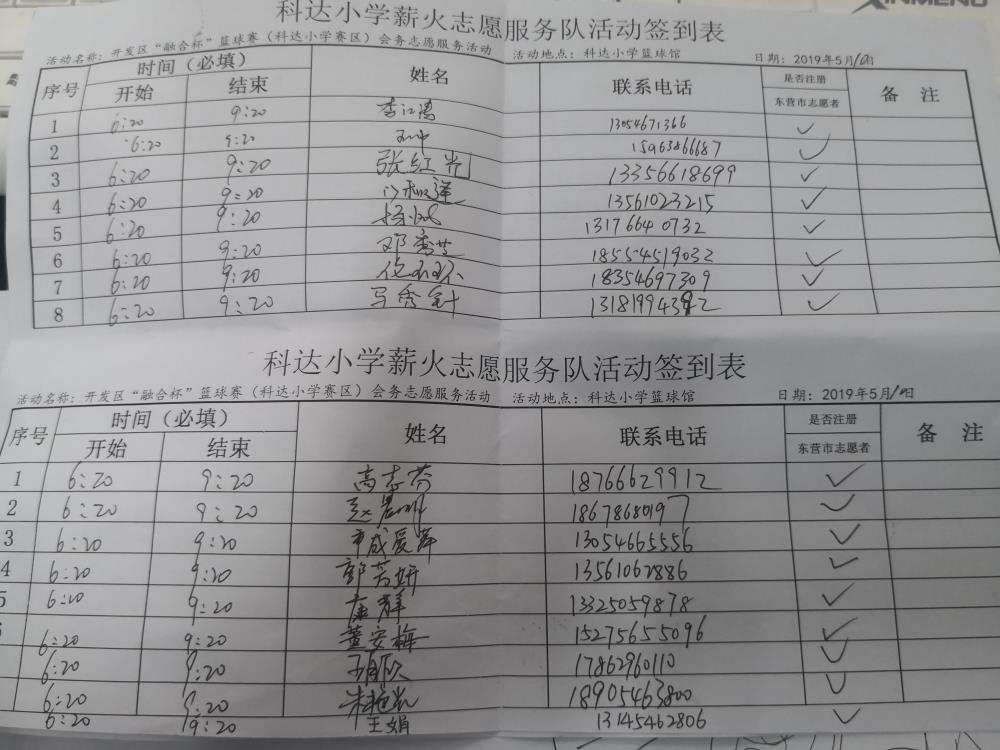 XINMENG
科达小学薪火志愿服务队活动签到表
活动名称：开发区“融合杯”篮球赛（科达小学赛区）会务志愿服务活动 活动地点：科达小学篮球馆 日期：2019年5月 日
序号 时间（必填） 姓名 联系电话 是否注册 备 注
开始 结束 东营市志愿者
1 6:20 9:20 13054671366 ✓
2 6:20 9:20 15963866687 ✓
3 6:20 9:20 张红光 13356618699 ✓
4 6:20 9:20 13561023215 ✓
5 6:20 9:20 13176640732 ✓
6 6:20 9:20 邓秀芝 18554519032 ✓
7 6:20 9:20 18354697309 ✓
8 6:20 9:20 马秀針 ✓
科达小学薪火志愿服务队活动签到表
活动名称：开发区“融合杯”篮球赛（科达小学赛区）会务志愿服务活动 活动地点：科达小学篮球馆 日期：2019年5月 日
序号 时间（必填） 姓名 联系电话 是否注册 备 注
开始 结束 东营市志愿者
1 6:20 9:20 高志芬 18766629912 ✓
2 6:20 9:20 18678680197 ✓
3 6:20 9:20 13054665556 ✓
4 6:20 9:20 郭芳妍 13561062886 ✓
5 6:20 9:20 康群 13325059878 ✓
6:20 9:20 董安梅 15275655096 ✓
6:20 9:20 17862960110 ✓
6:20 9:20 朱艳光 18905463800 ✓
6:20 9:20 王娟 13145462806 ✓